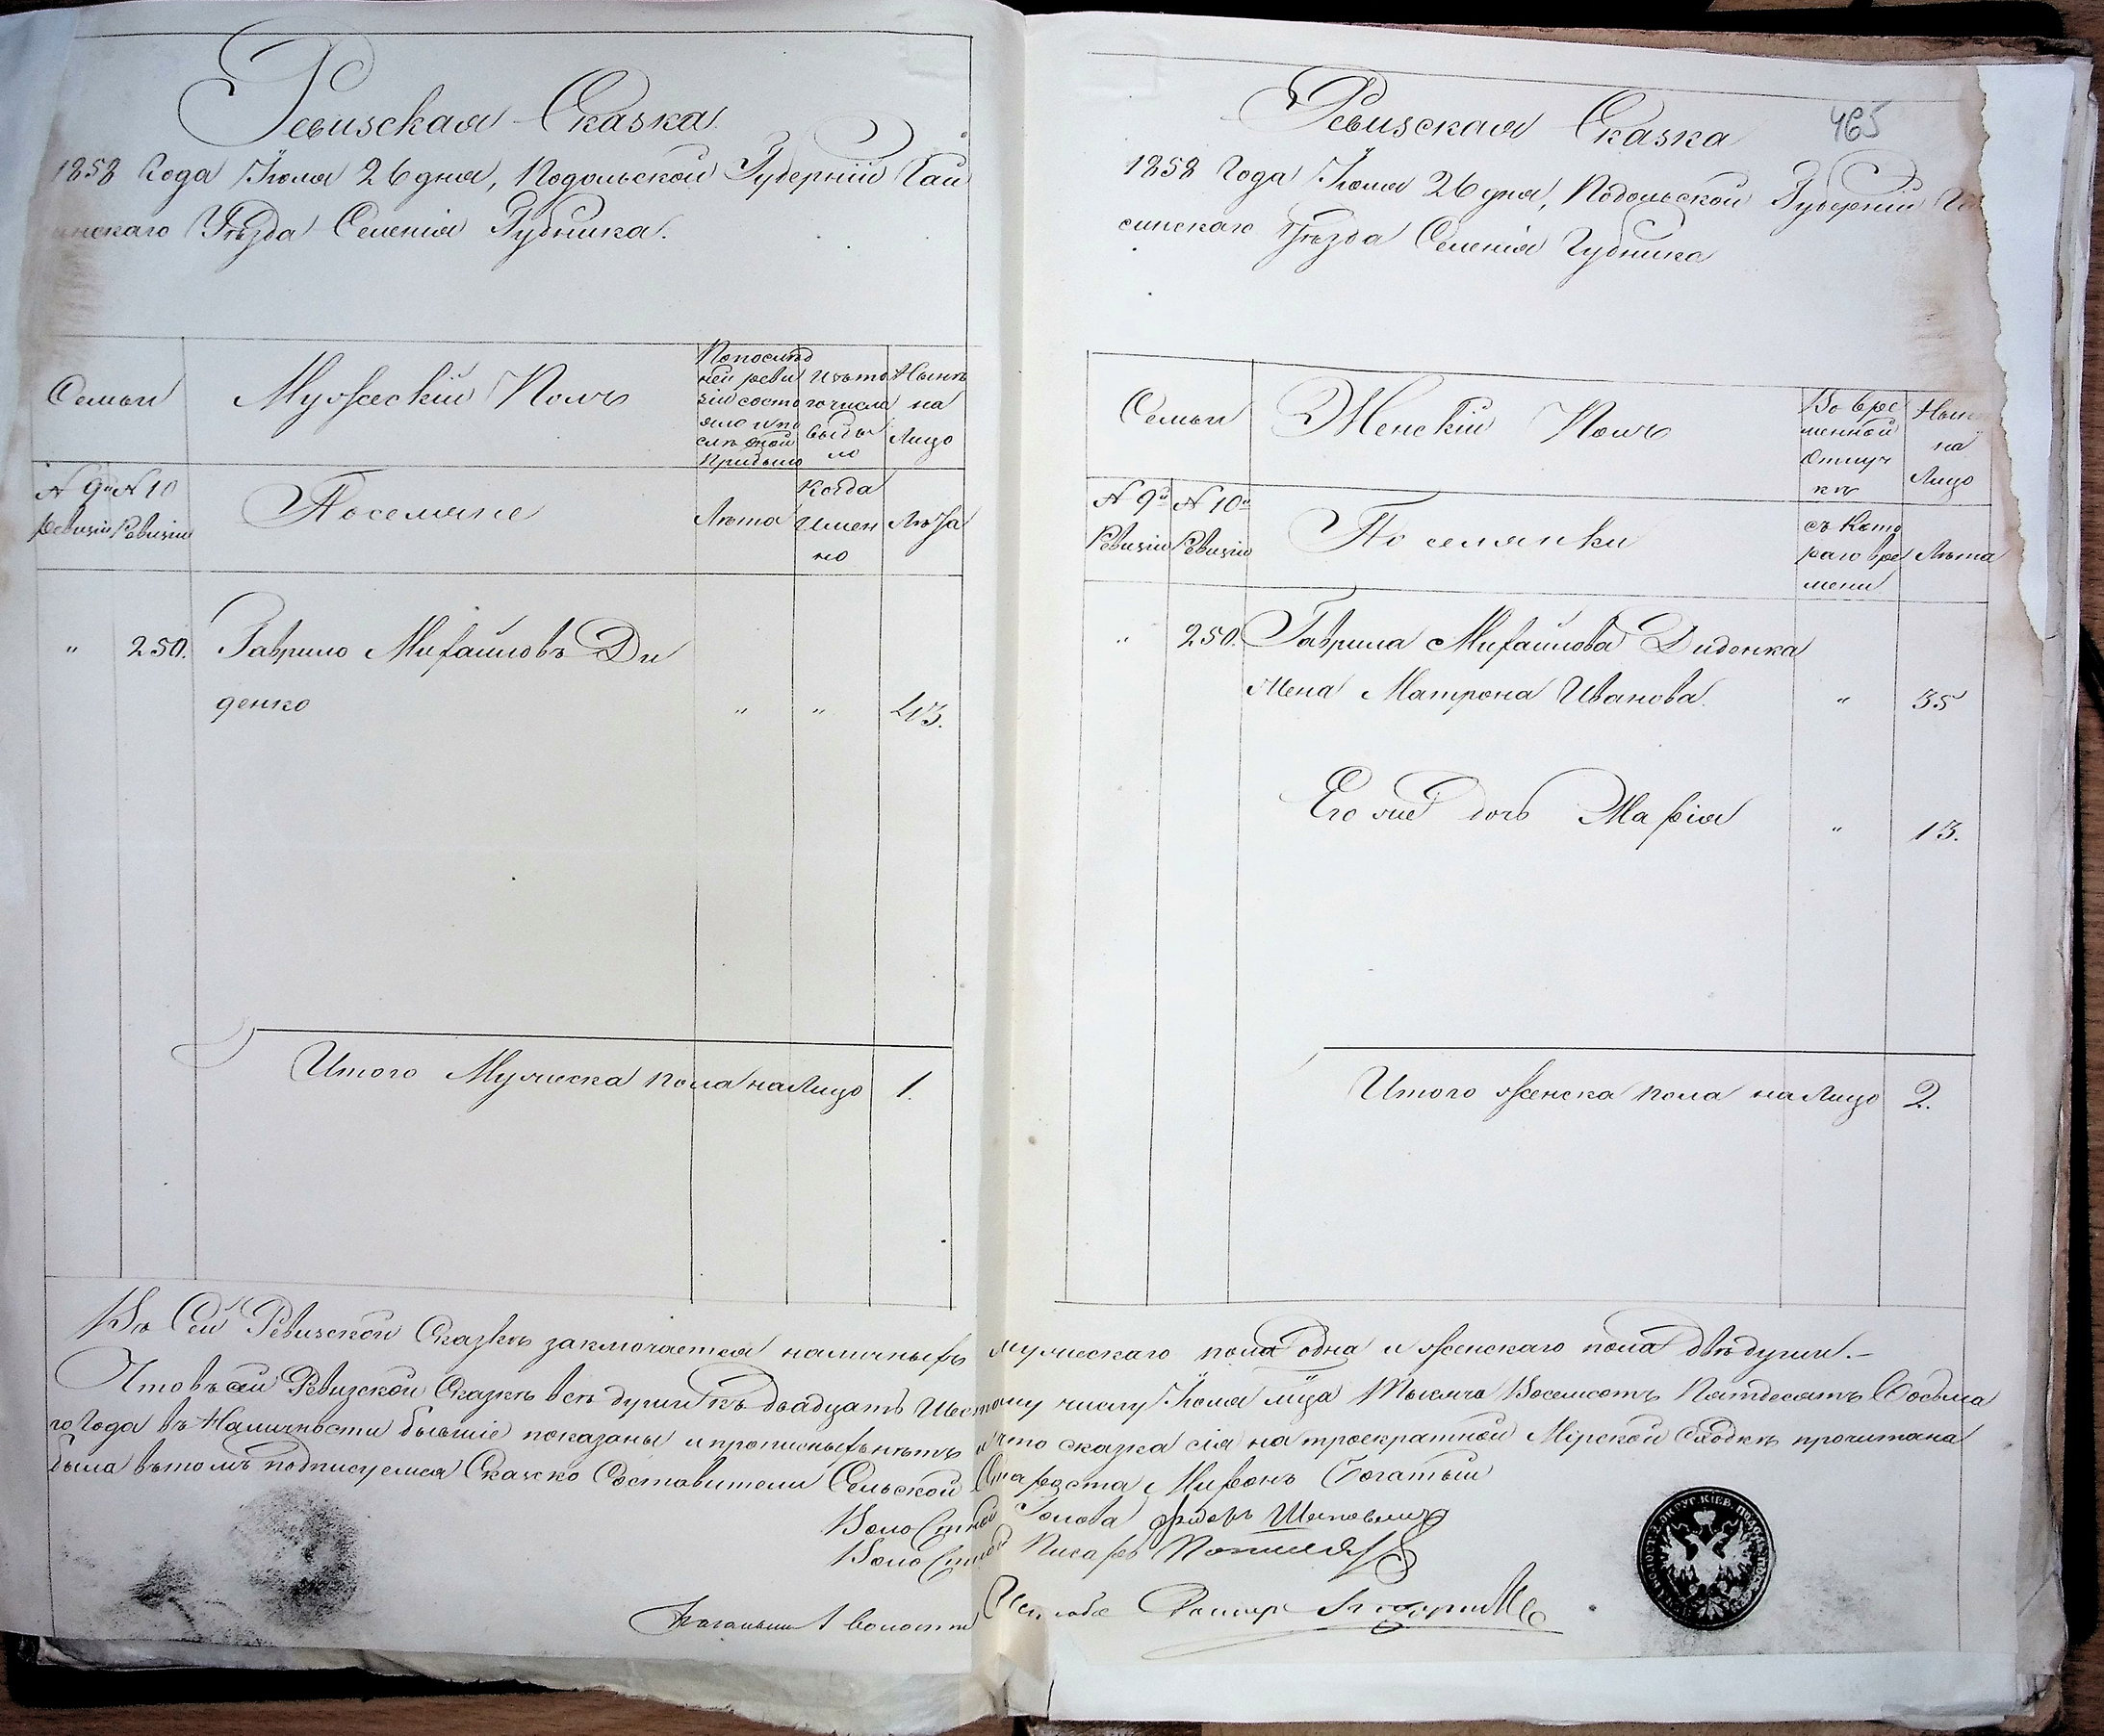 Ревизская Сказка
1858 Года Іюля 26 дня, Подольской Губерніи Гай
синскаго Уѣзда Селенія Губника.
Семьи
Мужескій Полъ
Попослѣд
ней реви
зіи состо
яло ипо
слѣ оной
Прибыло
Изъто
гочисла
выбы
ло
Нынѣ
на
Лицо
N 9й N 10
Ревизіи Ревизіи
Поселяне
Лѣта
Когда
имен
но
Лѣта
" 250. Гаврило Михайловъ Ди
денко " " 43.
Итого Мужеска пола наЛицо 1.
Ревизская Сказка
465
1858 Года Іюля 26 дня, Подольской Губерніи Га
синскаго Уѣзда Селенія Губника
Семьи
Женскій Полъ
Во вре
менной
Отлуч
кѣ
Нын
на
Лицо
N 9й N 10й
Ревизіи Ревизіи
Поселянки
съ Кото
раго вре
мени
Лѣта
" 250. Гаврила Михайлова Диденка
Жена Матрона Иванова. " 35
Его же дочь Марія " 13.
Итого женска пола на Лицо 2.
Въ Сей Ревизской Сказкѣ заключается наличныхъ мужескаго пола одна и женскаго пола двѣ души.-
Чтовъсей Ревизской Сказкѣ всѣ души къ двадцать Шестому числу Іюля мца Тысяча Восемсотъ Пятдесятъ Восьма
го Года въ Наличности бывшіе показаны ипрописныхънѣтъ ичто сказка сія на троекратной Мірской Сходкѣ прочитана
была вътомъ подписуемся Сказко Составители Сельской Староста Миронъ Богатый
Волостной Голова
Волостной Писарь